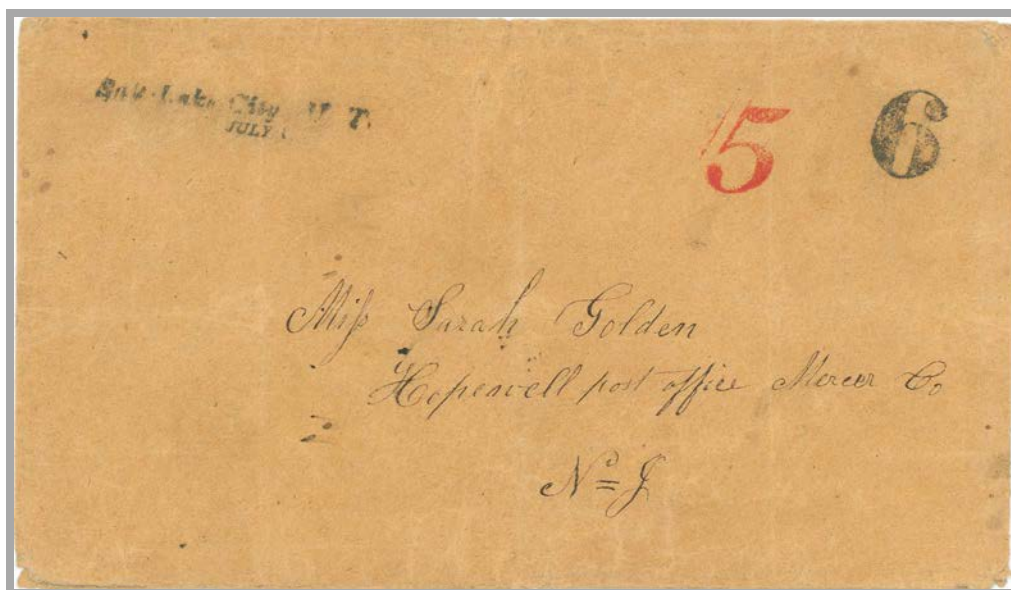 Salt Lake City U. T.
JULY
5 6
Miss Sarah Golden
Hopewell post office Mercer Co
N J